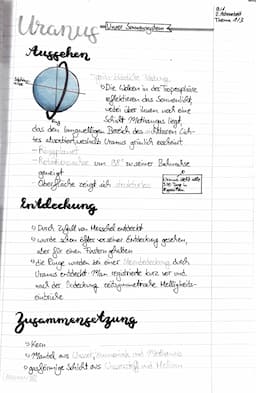 Uranus
Unser Sonnensystem
Thema 1/3
Aussehen
Typisch bläuliche Färbung
Die Wolken in der Troposphäre
reflektieren das Sonnenlicht,
wobei über ihnen noch eine
Schicht Methangas liegt,
das den langwelligen Bereich des sichtbaren Lich-
tes absorbiert, weshalb Uranus grünlich erscheint
Ring
Ringplanet
Rotationsachse um 98° zu seiner Bahnachse
geneigt
Oberfläche zeigt sich strukturlos
Entdeckung
Durch Zufall von Herschel entdeckt
wurde schon öfter vor seiner Entdeckung gesehen,
aber für einen Fixstern gehalten
die Ringe wurden bei einer Sternbedeckung durch
Uranus entdeckt. Man registrierte kurz vor und
nach der Bedeckung zeitsymmetrische Helligkeits-
einbrüche
Zusammensetzung
Kern
Mantel aus Wasser, Ammoniak und Methan
gasförmige Schicht aus Wasserstoff und Helium